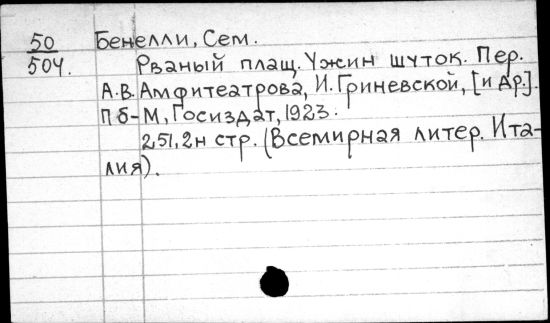 50
504.
Бенелли, Сем.
Рваный плащ. Ужин шуток. Пер.
А.В. Амфитеатрова, И. Гриневской, [и др.].
Пб-М, Госиздат, 1923.
251, 2н стр. (Всемирная литер. Ита-
лия).